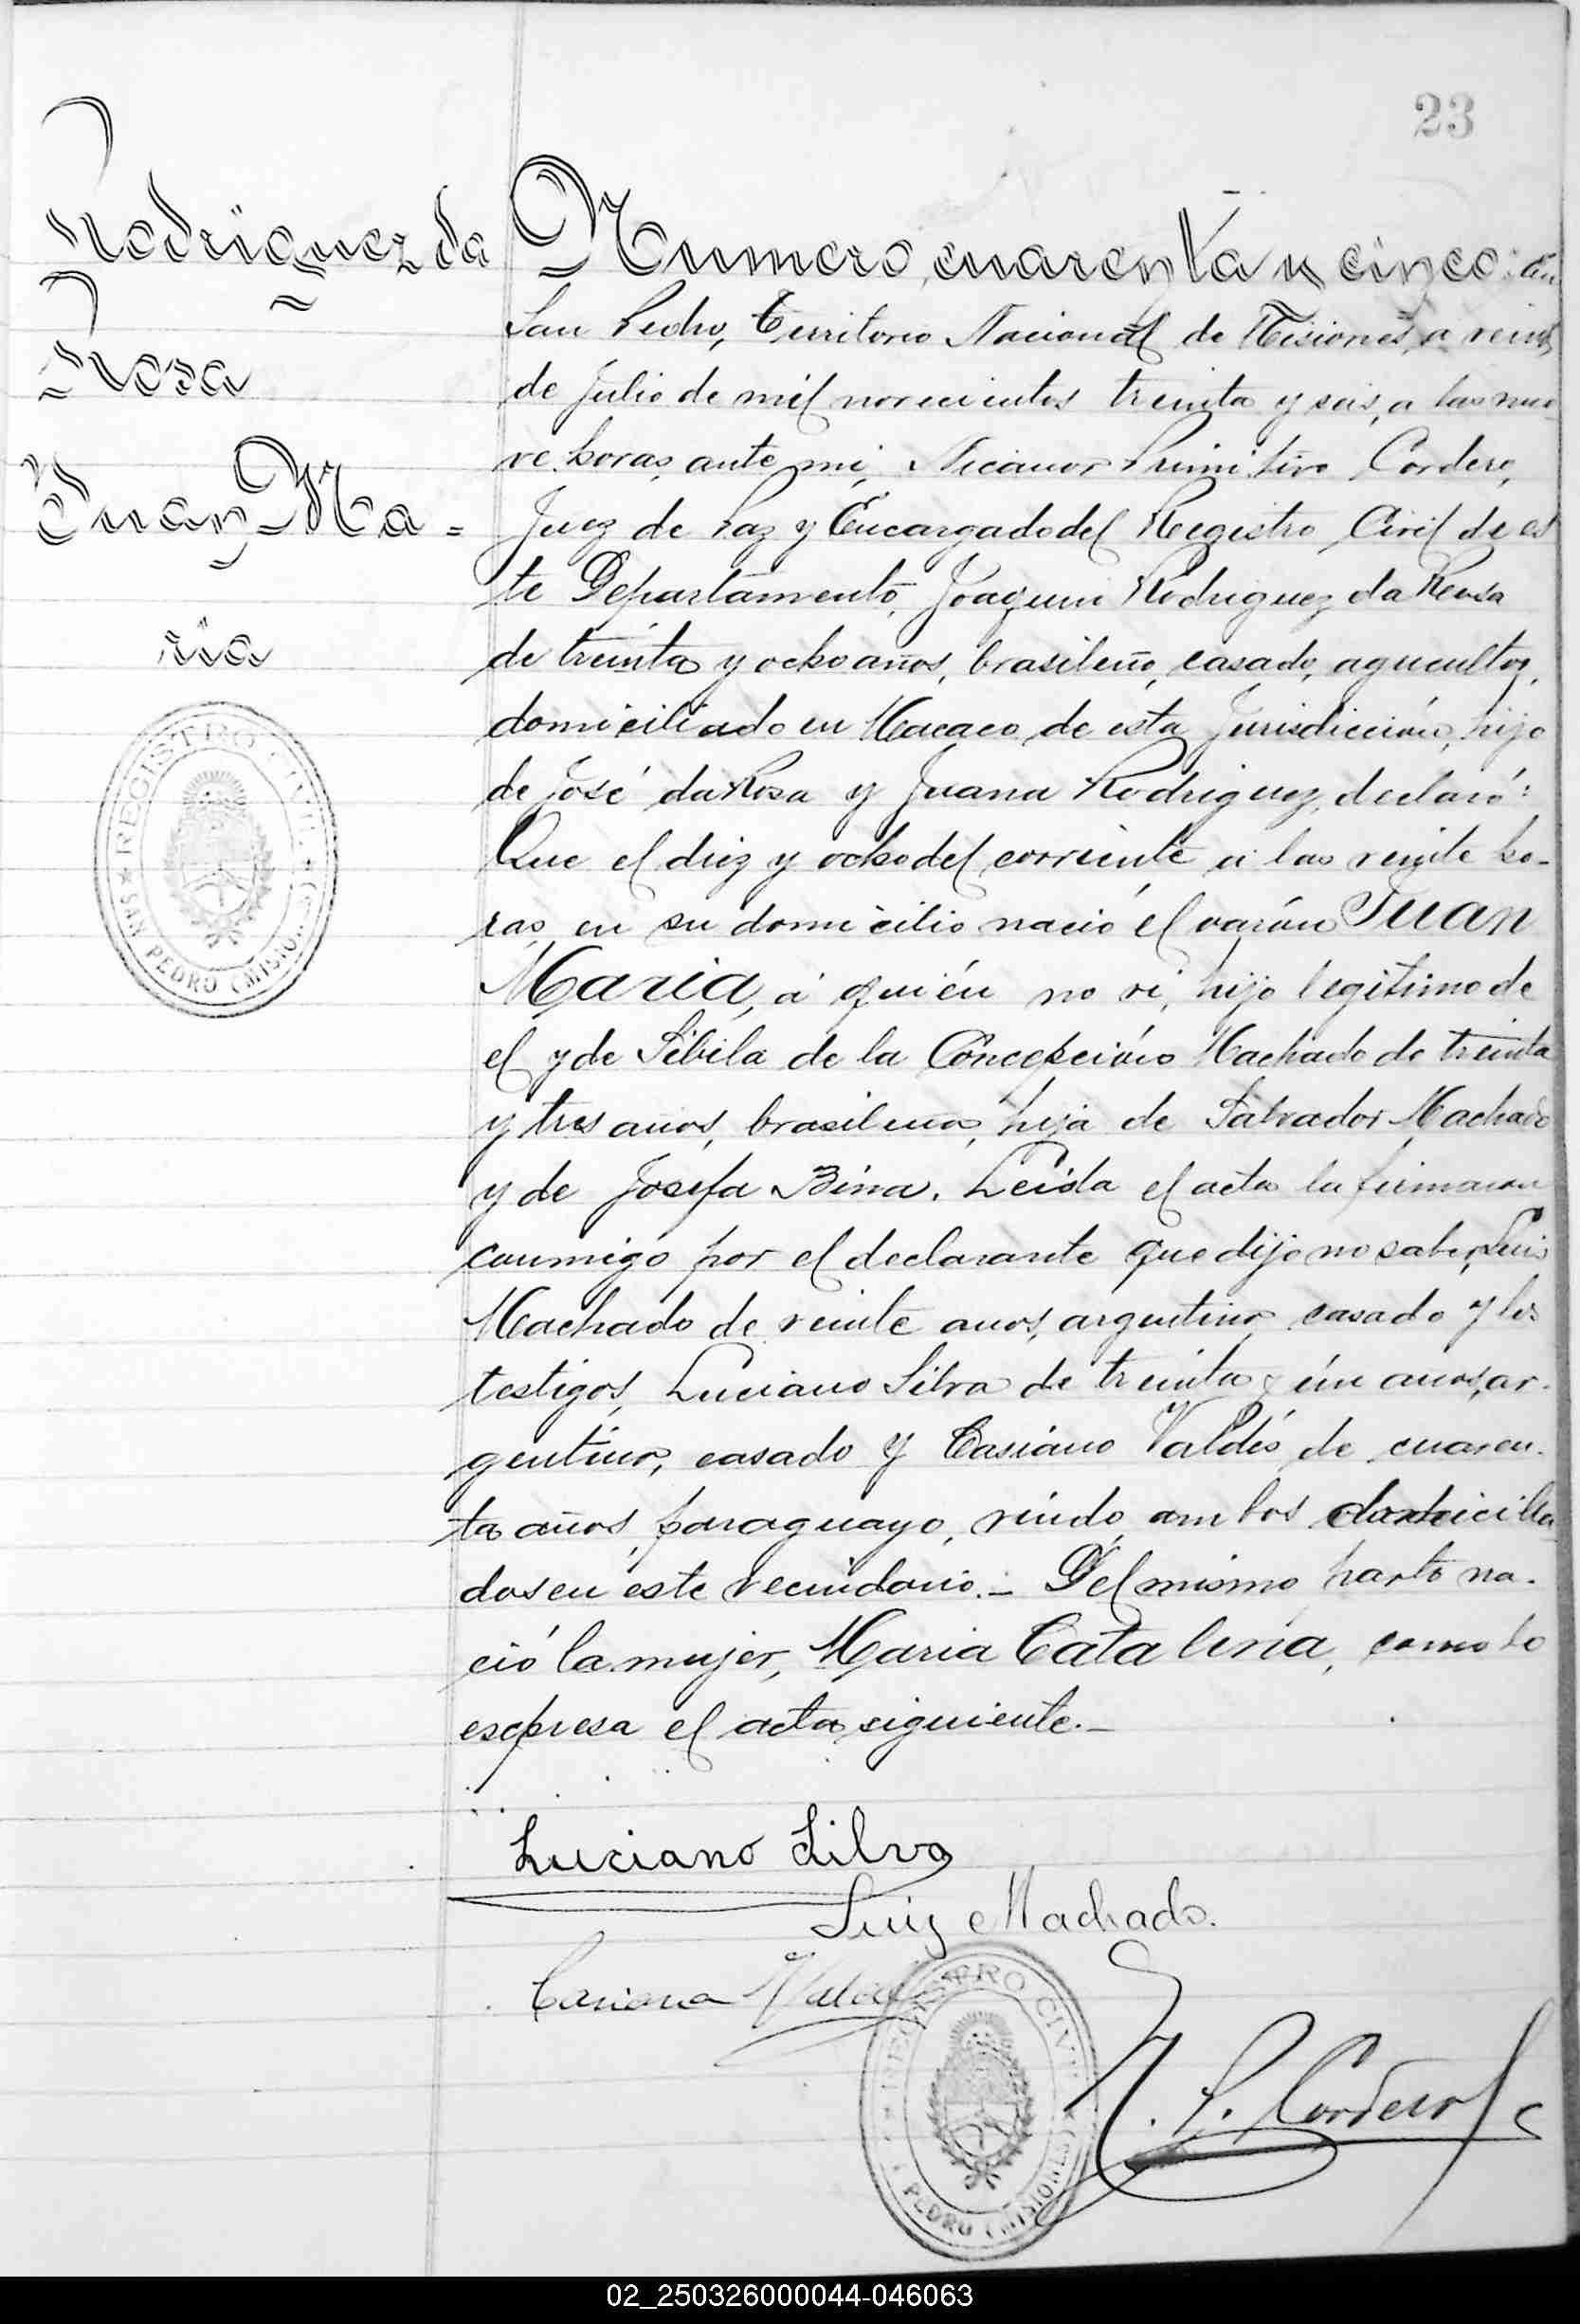 23
Rodriguez da
Rosa
Juan Ma=
ria
REGISTRO CIVIL
SAN PEDRO (MISIONES)
Numero cuarenta y cinco: En
San Pedro, Territorio Nacional de Misiones, a veinte
de Julio de mil novecientos treinta y seis, a las nue-
ve horas, ante mi, Nicanor Primitivo Cordero,
Juez de Paz y Encargado del Registro Civil de es
te Departamento, Joaquin Rodriguez da Rosa
de treinta y ocho años, brasileño, casado, agricultor,
domiciliado en Macaco de esta Jurisdicción, hijo
de José da Rosa y Juana Rodriguez, declaró:
Que el diez y ocho del corriente a las veinte ho-
ras, en su domicilio nació el varón Juan
Maria, á quién no vi, hijo legitimo de
el y de Sibila de la Concepción Machado de treinta
y tres años, brasilena, hija de Salvador Machado
y de Josefa Bina. Leida el acta la firmaron
conmigo por el declarante que dijo no saber, Luis
Machado de veinte anos, argentino casado y los
testigos, Luciano Silva de treinta y ún anos, ar-
gentino, casado y Casiano Valdés de cuaren-
ta años, paraguayo, viudo, ambos domicilia
dos en éste vecindario.- Del mismo parto na-
ció la mujer, Maria Catalina, como lo
escpresa el acta siguiente.-
Luciano Silva
Luiz Machado.
Casiano Valde
REGISTRO CIVIL
PEDRO (MISIONES)
N. P. Cordero
02_250326000044-046063